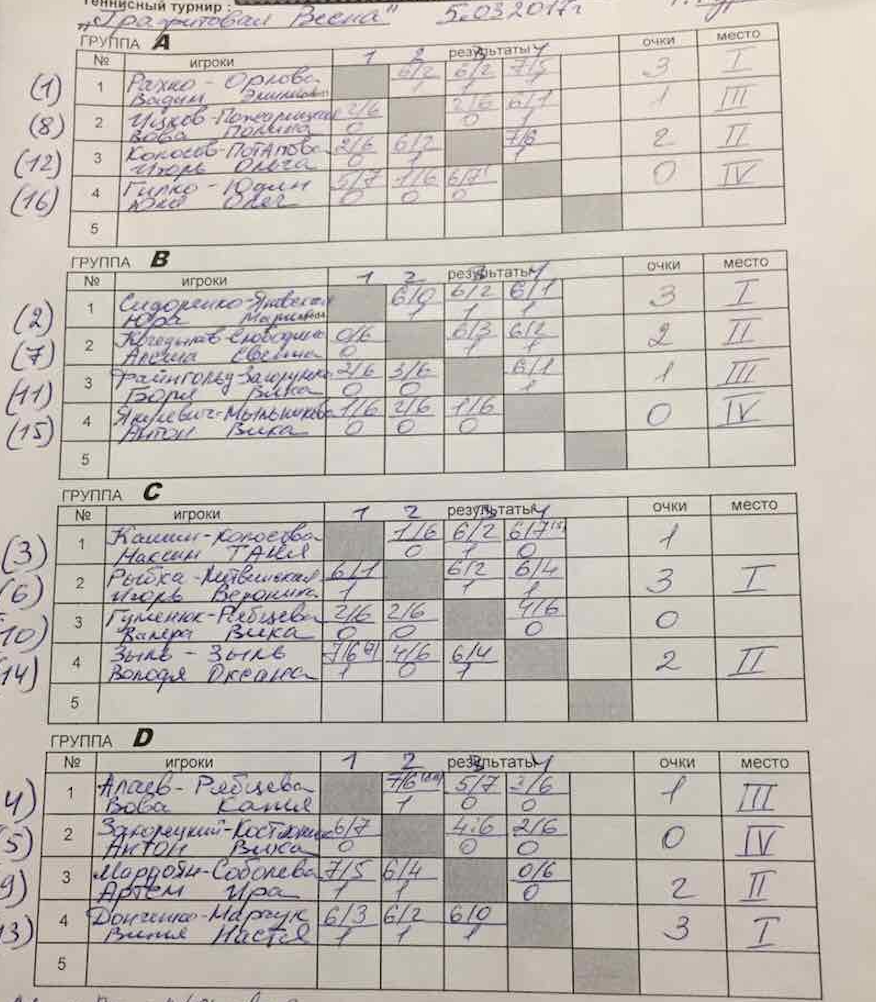 Теннисный турнир :
"Графитовая Весна" 5.03.2017г
ГРУППА A
№ игроки 1 2 результаты 4 очки место
(1) 1 Рахно - Орлова 6/2 6/2 7/5 3 I
Вадим 1 1 1
(8) 2 2/6 2/6 6/1 1 III
Вова Полина 0 0 1
(12) 3 Колосов-Потапова 2/6 6/2 7/6 2 II
Игорь Ольга 0 1 1
(16) 4 Гилко - Юдин 5/7 1/6 6/7 0 IV
Юля Олег 0 0 0
5
ГРУППА B
№ игроки 1 2 результаты 4 очки место
(2) 1 Сидоренко- 6/0 6/2 6/1 3 I
Юра Марианна 1 1 1
(7) 2 0/6 6/3 6/2 2 II
0 1 1
(11) 3 Файнгольд- 2/6 3/6 6/1 1 III
Боря Вика 0 0 1
(15) 4 -Мыльникова 1/6 2/6 1/6 0 IV
Антон Вика 0 0 0
5
ГРУППА C
№ игроки 1 2 результаты 4 очки место
(3) 1 -Колосова 1/6 6/2 6/7 1
Максим Таня 0 1 0
(6) 2 Рыбка - 6/1 6/2 6/4 3 I
Игорь Вероника 1 1 1
(10) 3 Гуменюк-Рябцева 2/6 2/6 4/6 0
Валера Вика 0 0 0
(14) 4 Зыль - Зыль 7/6 4/6 6/4 2 II
Володя Оксана 1 0 1
5
ГРУППА D
№ игроки 1 2 результаты 4 очки место
4) 1 Алаев- Рябцева 7/6 5/7 3/6 1 III
Вова Катя 1 0 0
5) 2 6/7 4:6 2/6 0 IV
Антон Вика 0 0 0
9) 3 -Соболева 7/5 6/4 0/6 2 II
Артем Ира 1 1 0
13) 4 Донченко-Марчук 6/3 6/2 6/0 3 I
Витя Настя 1 1 1
5